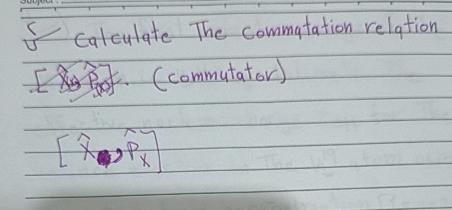 Calculate The Commutation relation
[X̂, P̂x]. (commutator)
[X̂, P̂x]